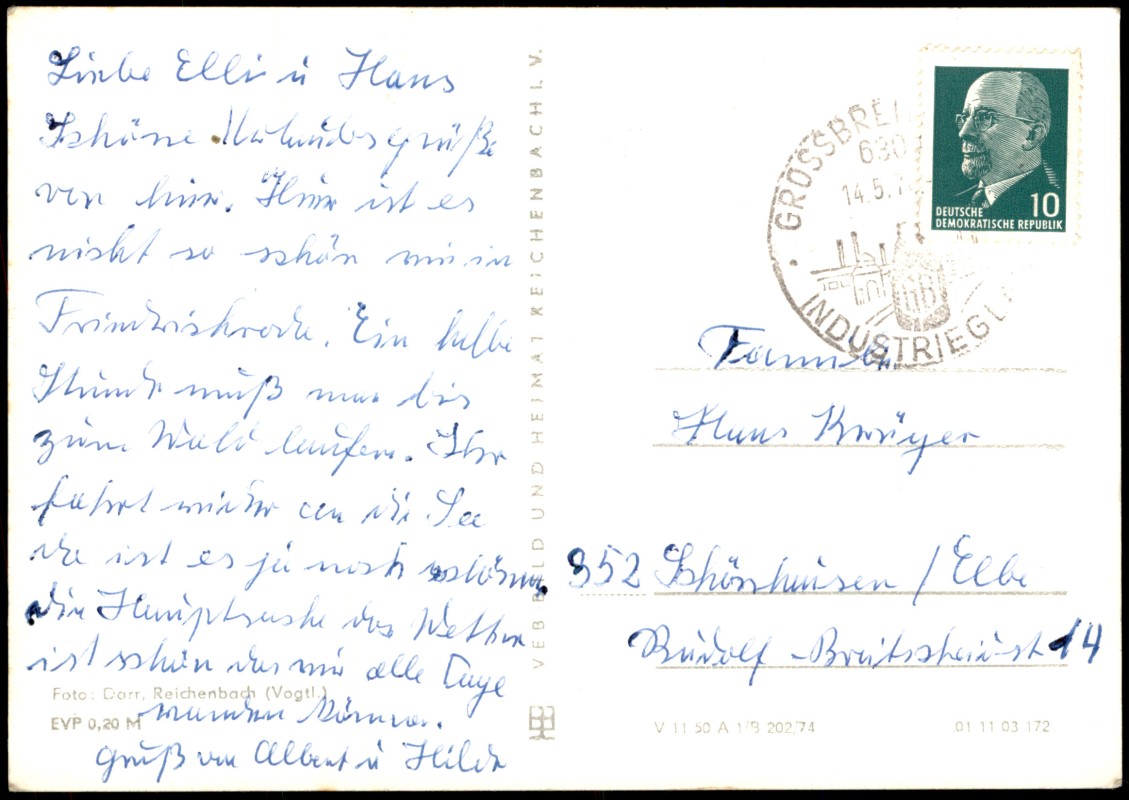 Liebe Elli u Hans
Schöne Urlaubsgrüße
von hier. Hier ist es
nicht so schön wie in
Friedrichroda. Ein halbe
Stunde muß man bis
zum Wald laufen. Ihr
fahrt wieder an die See
da ist es ja noch schöner.
Die Hauptsache das Wetter
ist schön das wir alle Tage
wandern können.
Gruß von Albert u Hilde
Foto: Darr, Reichenbach (Vogtl.)
EVP 0,20 M
VEB BILD UND HEIMAT REICHENBACH I. V.
GROSSBREI
630
14.5.7
GB
INDUSTRIEGL
10
DEUTSCHE
DEMOKRATISCHE REPUBLIK
Familie
Hans Krüger
352 Schönhausen / Elbe
Rudolf-Breitscheidst 14
V 11 50 A 1/B 202/74
01 11 03 172